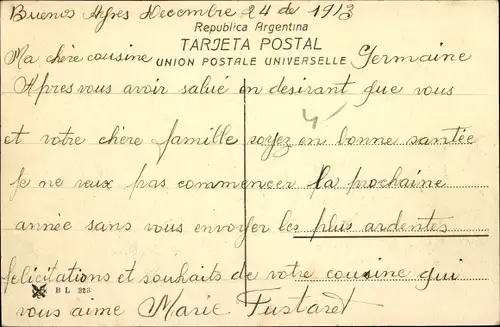 Buenos Ayres Decembre 24 de 1913
Republica Argentina
TARJETA POSTAL
Ma chère cousine UNION POSTALE UNIVERSELLE Germaine
Apres vous avoir salué en desirant que vous
et votre chère famille soyez en bonne santée
Je ne veux pas commencer la prochaine
année sans vous envoyer les plus ardentes
felicitations et souhaits de votre cousine qui
BL 323
vous aime Marie Fustaret